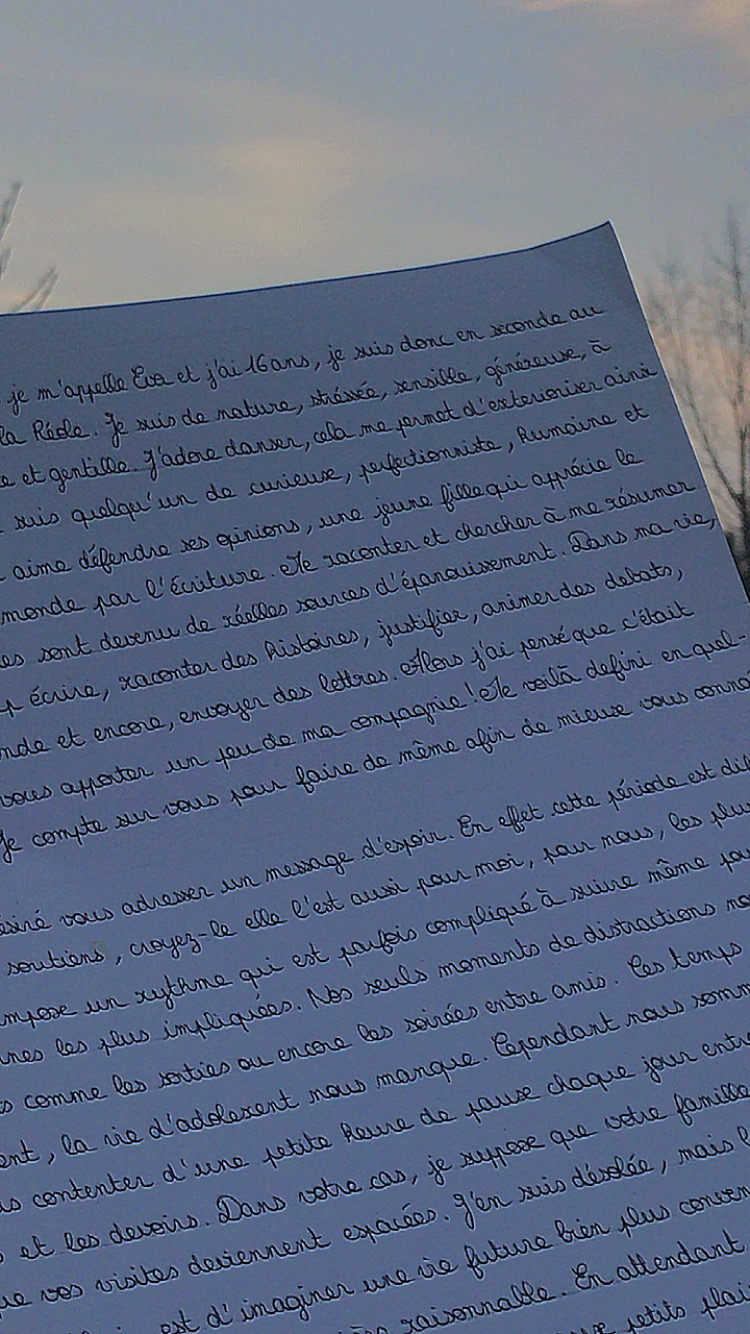 je m'appelle Eva et j'ai 16 ans, je suis donc en seconde au
la Réole. Je suis de nature, stréssée, sensible, généreuse, à
et gentille. J'adore danser, cela me permet d'exterioriser ainsi
suis quelqu'un de curieuse, perfectionniste, humaine et
aime défendre ses opinions, une jeune fille qui apprécie le
monde par l'écriture. Me raconter et chercher à me résumer
sont devenu de réelles sources d'épanouissement. Dans ma vie,
écrire, raconter des histoires, justifier, animer des debats,
et encore, envoyer des lettres. Alors j'ai pensé que c'était
vous apporter un peu de ma compagnie! Me voilà defini en quel-
Je compte sur vous pour faire de même afin de mieux vous connaî
vous adresser un message d'espoir. En effet cette période est dif
soutiens, croyez-le elle l'est aussi pour moi, pour nous, les plu
impose un rythme qui est parfois compliqué à suivre même pou
les plus impliquées. Nos seuls moments de distractions no
comme les sorties ou encore les soirées entre amis. Ces temps
la vie d'adolesent nous manque. Cependant nous somm
contenter d'une petite heure de pause chaque jour entre
et les devoirs. Dans votre cas, je suppose que votre famille
que vos visites deviennent espacées. J'en suis désolée, mais
est d'imaginer une vie future bien plus conven
raisonnable. En attendant
petits plai